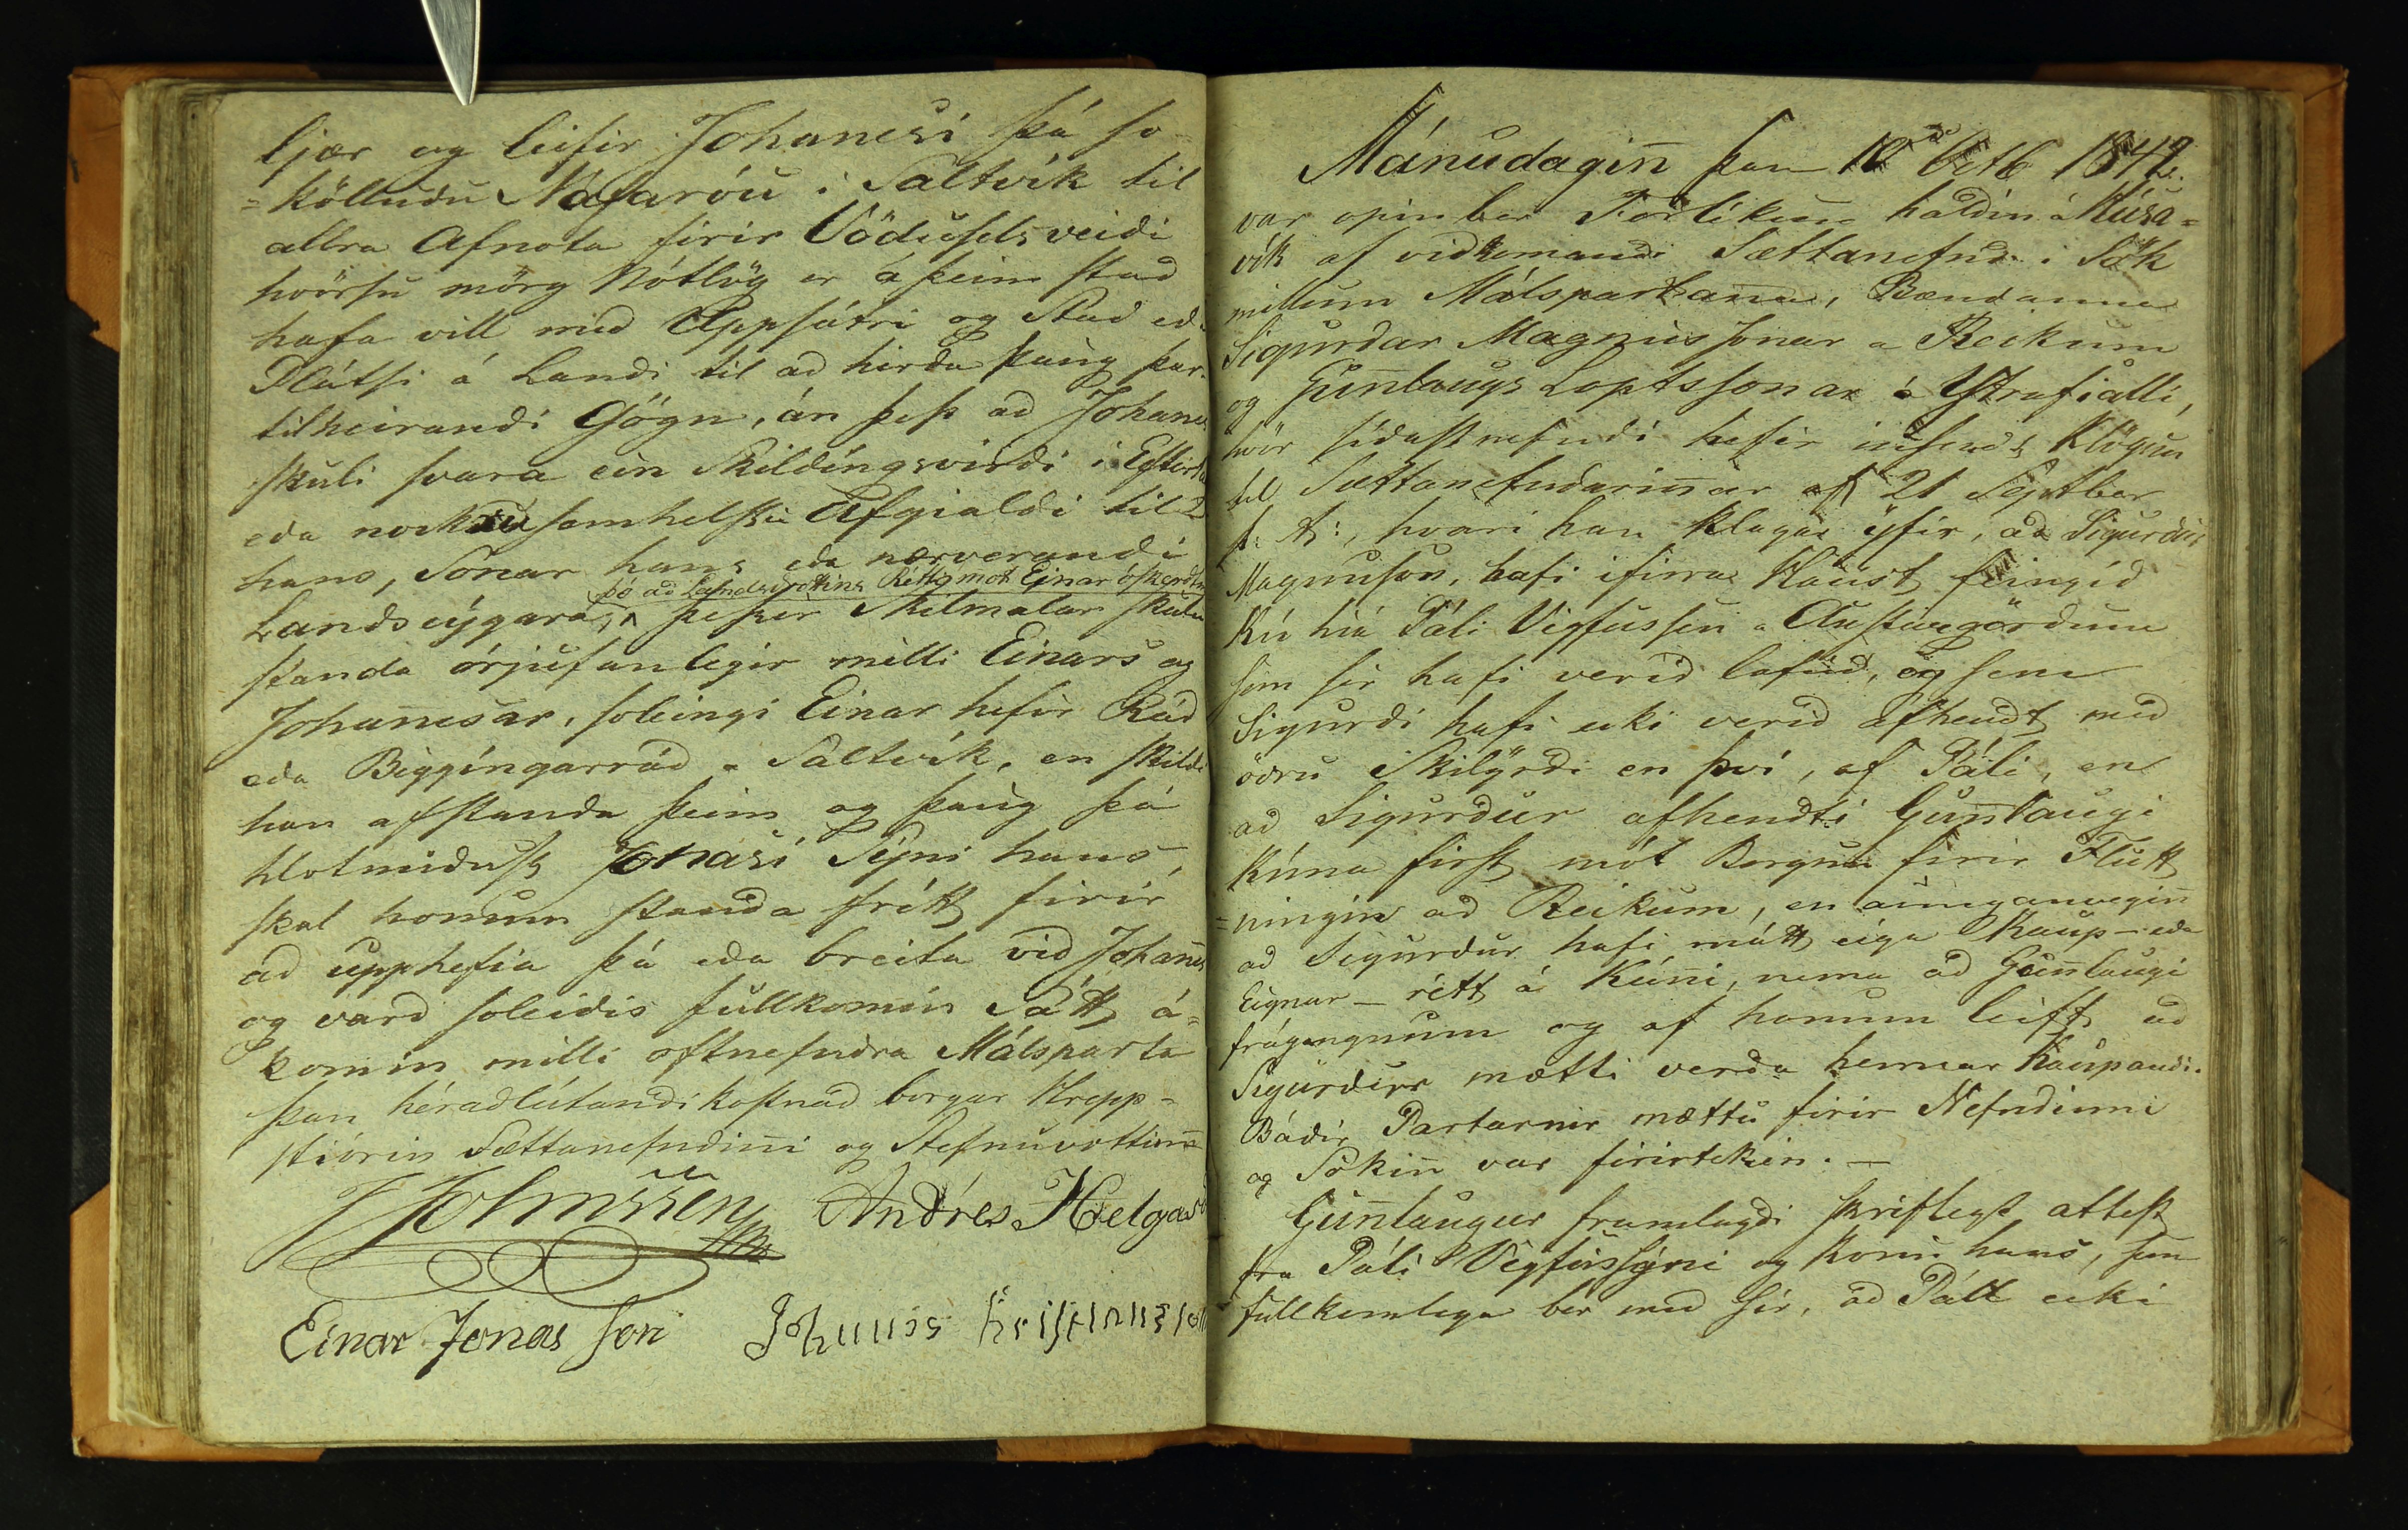 ljær og leifir Johanesi þá so-
=kölluðu Náfaróu i Saltvík til
allra Afnota firir Vöduselsveiði
hvörsu mörg Nótlög er á þeim stað
hafa vill með Uppsátri og Stað eða
Plátsi á Landi til að hirða þaug þar-
tilheirandi Gögn, án þess að Johanes
skuli svara ein Skildingsvirði i Eftir
eða nockru samhelstu Afgialdi til
hans, Sonar hans eða nærverandi
þó að Landsdrottins Rettg mot Einar óskerdtu
Landseýgara, þessir Skilmalar skulu
standa órjúfanlegir milli Einars og
Johannesar, soleingi Einar hefir Ráð
eða Biggíngarráð a Saltvík, en skildi
han afstanda þeim og þaug þá
hlotnidust Jonasi Sýni hans,
skal honum standa frítt firir
að upphefia þá eða breita við Johannes
og varð soleidis fullkomin Sátt á-
komin milli oftnefndra Málsparta
þan héraðlútandi kostnað borgar Hrepp-
stiórin Sættanefndini og Stefnuvottunum
JJohnssen Andrés Helgason
Einar Jonas son Johunnis Kristiánsson
Mánudagin þan 10da Octb 1842.
var opinber Forlíkun haldin á Húsa=
vík af viðkomandi Sættanefnd i Sök
millum Málspartanna, Bændanna
Sigurdar Magnússonar a Reikum
og Gunlaugs Loptssonar á Ytrafialli,
hvör síðastnefndi hefir innsendt Klögun
til Sættanefndarinnar af 21 Septbar
þ: A:, hvari han klagar ýfir, að Sigurdur
Magnuson, hafi ifirra Haust feingið
Kú hiá Páli Vigfússyni a Austurgördum
sem sér hafi verið lofuð, og sem
Sigurdi hafi ecki verið afhendt með
öðru Skilýrði en því, af Páli, en
að Sigurdur afhendti Gunlaugi
Kúna first mót Borgun firir Flutt
=ningin að Reikum, en aunganvegin
að Sigurdur hafi mátt eiga Kaup- eða
Eignar- rétt á Kúni, nema að Gunlaugi
frágengnum og af honum leift að
Sigurdur mætti verða hennar kaupandi.
Báðir Partarnir mættu firir Nefndinni
og Sökin var firirtekin. —
Gunlaugur framlagði skriflegt attest
fra Páli Vigfússýni og Konu hans, sem
fullkomlega ber með sér, að Páll ecki